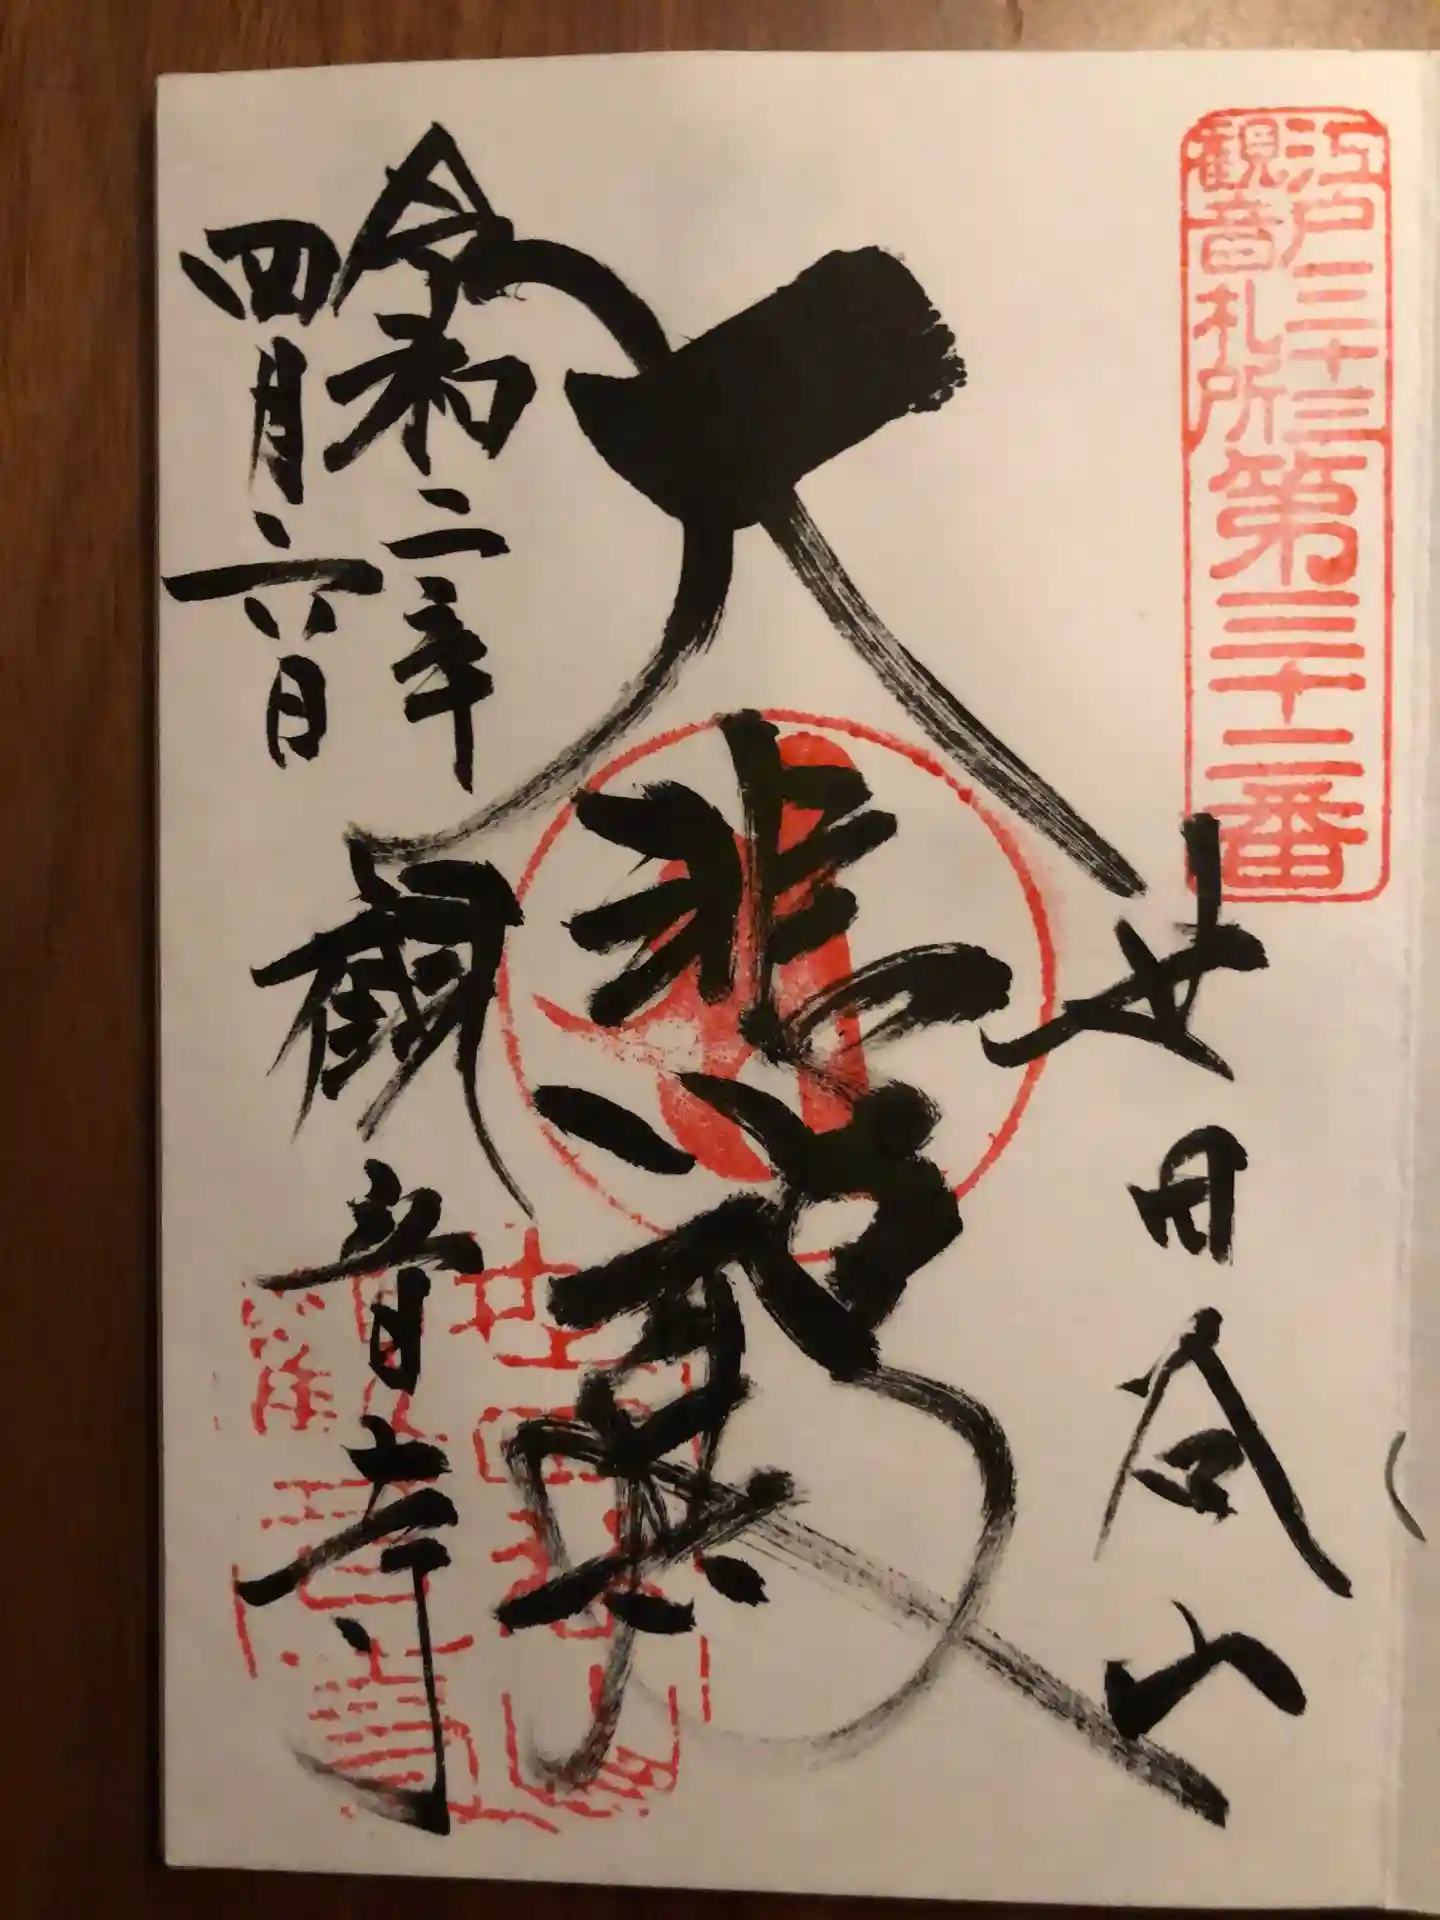 江戸三十三
観音札所
第三十二番
世田谷山
大悲殿
観音寺
令和二年
四月六日